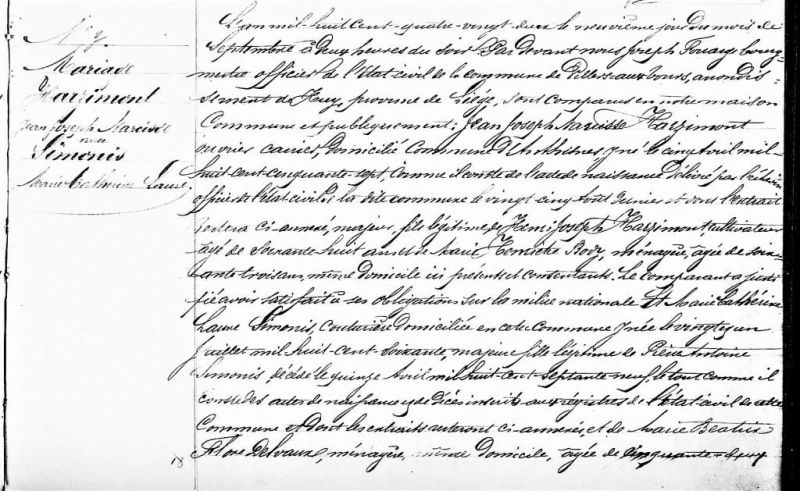 N° 7
Mariage
Harzimont
Jean Joseph Narcisse
avec
Simonis
Marie Catherine Laure
L'an mil huit cent quatre-vingt-deux le neuvième jour du mois de
Septembre à deux heures du soir Par devant nous Joseph bourg
mestre officier de l'état civil de la commune de Villers-aux-tours, arrondis
sement de Huy, province de Liége, sont comparus en notre maison
Commune et publiquement: Jean Joseph Narcisse Harzimont
ouvrier carrier, domicilié Commune d'Anthisnes, y né le cinq Avril mil-
huit cent cinquante sept, comme il conste de l'acte de naissance délivré par
officier de l'état civil de la dite commune le vingt cinq et dont l'extrait
restera ci-annexé, majeur, fils légitime de Henri Joseph Harzimont cultivateur
âgé de Soixante huit ans et de Marie Henriette Body, ménagère, âgée de soix
ante trois ans, même domicile ici présents et consentants. Le comparant a justi
fié avoir satisfait à ses obligations sur la milice nationale Et Marie Catherine
Laure Simonis, couturière domiciliée en cette Commune y née le vingt et un
Juillet mil huit-cent-soixante, majeure fille légitime de Pierre Antoine
Simonis décédé le quinze Avril mil huit cent septante neuf le tout comme il
conste des actes de naissance et de décès inscrits aux régistres de l'état civil de cette
Commune et dont les extraits resteront ci-annexés, et de Marie Beatrix
Flore Delvaux, ménagère, même domicile, âgée de cinquante-deux
18